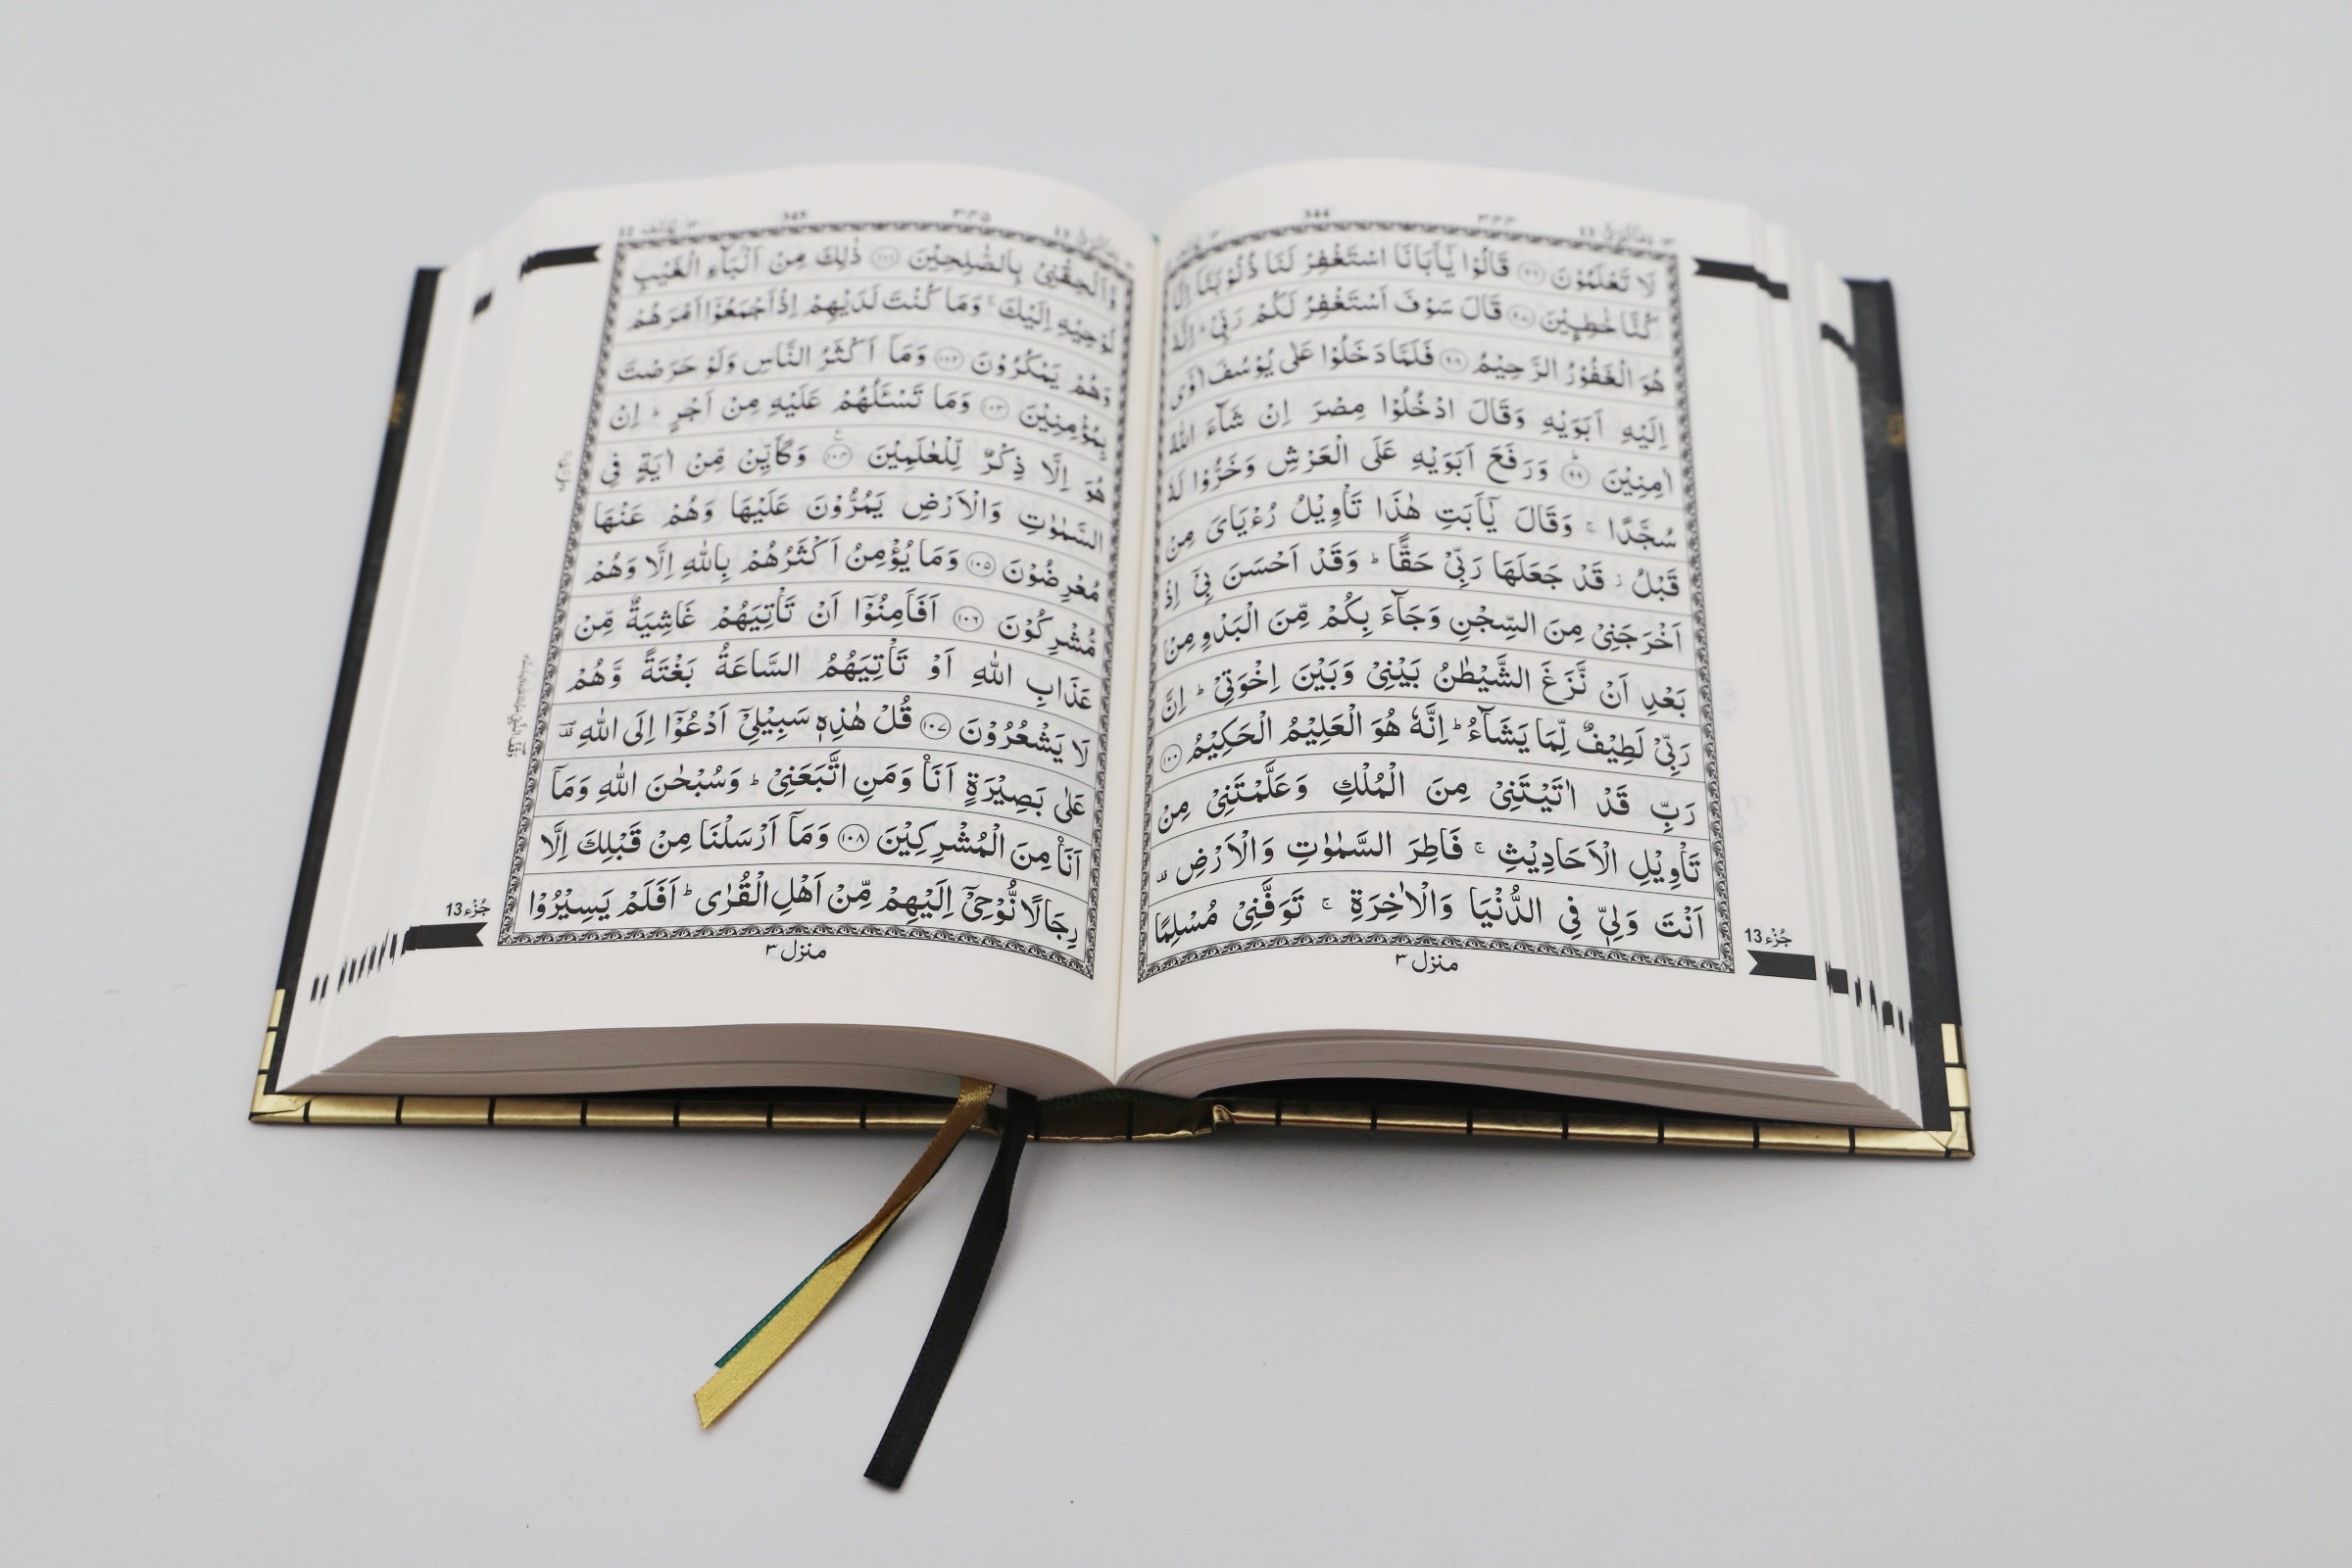 344
٣٣٣
13
لَا تَعْلَمُوْنَ ۝٩٦ قَالُوْا يٰٓاَبَانَا اسْتَغْفِرْ لَنَا ذُنُوْبَنَآ اِنَّا
كُنَّا خٰطِـِٕيْنَ ۝٩٧ قَالَ سَوْفَ اَسْتَغْفِرُ لَكُمْ رَبِّيْ ؕ اِنَّهٗ
هُوَ الْغَفُوْرُ الرَّحِيْمُ ۝٩٨ فَلَمَّا دَخَلُوْا عَلٰى يُوْسُفَ اٰوٰٓى
اِلَيْهِ اَبَوَيْهِ وَقَالَ ادْخُلُوْا مِصْرَ اِنْ شَآءَ اللّٰهُ
اٰمِنِيْنَ ۝٩٩ وَرَفَعَ اَبَوَيْهِ عَلَى الْعَرْشِ وَخَرُّوْا لَهٗ
سُجَّدًا ۚ وَقَالَ يٰٓاَبَتِ هٰذَا تَاْوِيْلُ رُءْيَايَ مِنْ
قَبْلُ ؗ قَدْ جَعَلَهَا رَبِّيْ حَقًّا ؕ وَقَدْ اَحْسَنَ بِيْٓ اِذْ
اَخْرَجَنِيْ مِنَ السِّجْنِ وَجَآءَ بِكُمْ مِّنَ الْبَدْوِ مِنْ
بَعْدِ اَنْ نَّزَغَ الشَّيْطٰنُ بَيْنِيْ وَبَيْنَ اِخْوَتِيْ ؕ اِنَّ
رَبِّيْ لَطِيْفٌ لِّمَا يَشَآءُ ؕ اِنَّهٗ هُوَ الْعَلِيْمُ الْحَكِيْمُ ۝١٠٠
رَبِّ قَدْ اٰتَيْتَنِيْ مِنَ الْمُلْكِ وَعَلَّمْتَنِيْ مِنْ
تَاْوِيْلِ الْاَحَادِيْثِ ۚ فَاطِرَ السَّمٰوٰتِ وَالْاَرْضِ ۫
اَنْتَ وَلِيّٖ فِي الدُّنْيَا وَالْاٰخِرَةِ ۚ تَوَفَّنِيْ مُسْلِمًا
جُزْء 13
منزل ٣
345
٣٣٥
13
12
وَّاَلْحِقْنِيْ بِالصّٰلِحِيْنَ ۝١٠١ ذٰلِكَ مِنْ اَنْۢبَآءِ الْغَيْبِ
نُوْحِيْهِ اِلَيْكَ ۚ وَمَا كُنْتَ لَدَيْهِمْ اِذْ اَجْمَعُوْٓا اَمْرَهُمْ
وَهُمْ يَمْكُرُوْنَ ۝١٠٢ وَمَآ اَكْثَرُ النَّاسِ وَلَوْ حَرَصْتَ
بِمُؤْمِنِيْنَ ۝١٠٣ وَمَا تَسْـَٔلُهُمْ عَلَيْهِ مِنْ اَجْرٍ ؕ اِنْ
هُوَ اِلَّا ذِكْرٌ لِّلْعٰلَمِيْنَ ۝١٠٤ وَكَاَيِّنْ مِّنْ اٰيَةٍ فِي
السَّمٰوٰتِ وَالْاَرْضِ يَمُرُّوْنَ عَلَيْهَا وَهُمْ عَنْهَا
مُعْرِضُوْنَ ۝١٠٥ وَمَا يُؤْمِنُ اَكْثَرُهُمْ بِاللّٰهِ اِلَّا وَهُمْ
مُّشْرِكُوْنَ ۝١٠٦ اَفَاَمِنُوْٓا اَنْ تَاْتِيَهُمْ غَاشِيَةٌ مِّنْ
عَذَابِ اللّٰهِ اَوْ تَاْتِيَهُمُ السَّاعَةُ بَغْتَةً وَّهُمْ
لَا يَشْعُرُوْنَ ۝١٠٧ قُلْ هٰذِهٖ سَبِيْلِيْٓ اَدْعُوْٓا اِلَى اللّٰهِ ۫ؔ
عَلٰى بَصِيْرَةٍ اَنَا۠ وَمَنِ اتَّبَعَنِيْ ؕ وَسُبْحٰنَ اللّٰهِ وَمَآ
اَنَا۠ مِنَ الْمُشْرِكِيْنَ ۝١٠٨ وَمَآ اَرْسَلْنَا مِنْ قَبْلِكَ اِلَّا
رِجَالًا نُّوْحِيْٓ اِلَيْهِمْ مِّنْ اَهْلِ الْقُرٰى ؕ اَفَلَمْ يَسِيْرُوْا
جُزْء 13
منزل ٣